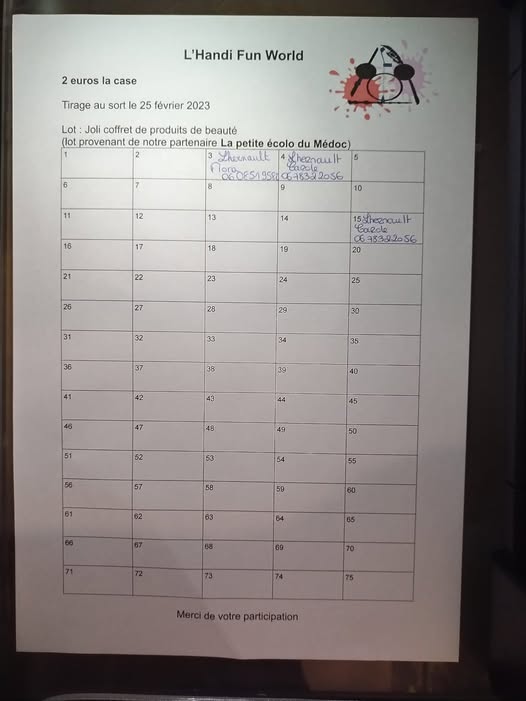 L'Handi Fun World
2 euros la case
Tirage au sort le 25 février 2023
Lot : Joli coffret de produits de beauté
(lot provenant de notre partenaire La petite écolo du Médoc)
1 2 3 Lhernault 4 Lhernault 5
Flora Carole
0678322056
6 7 8 9 10
11 12 13 14 15 Lhernault
Carole
0678322056
16 17 18 19 20
21 22 23 24 25
26 27 28 29 30
31 32 33 34 35
36 37 38 39 40
41 42 43 44 45
46 47 48 49 50
51 52 53 54 55
56 57 58 59 60
61 62 63 64 65
66 67 68 69 70
71 72 73 74 75
Merci de votre participation